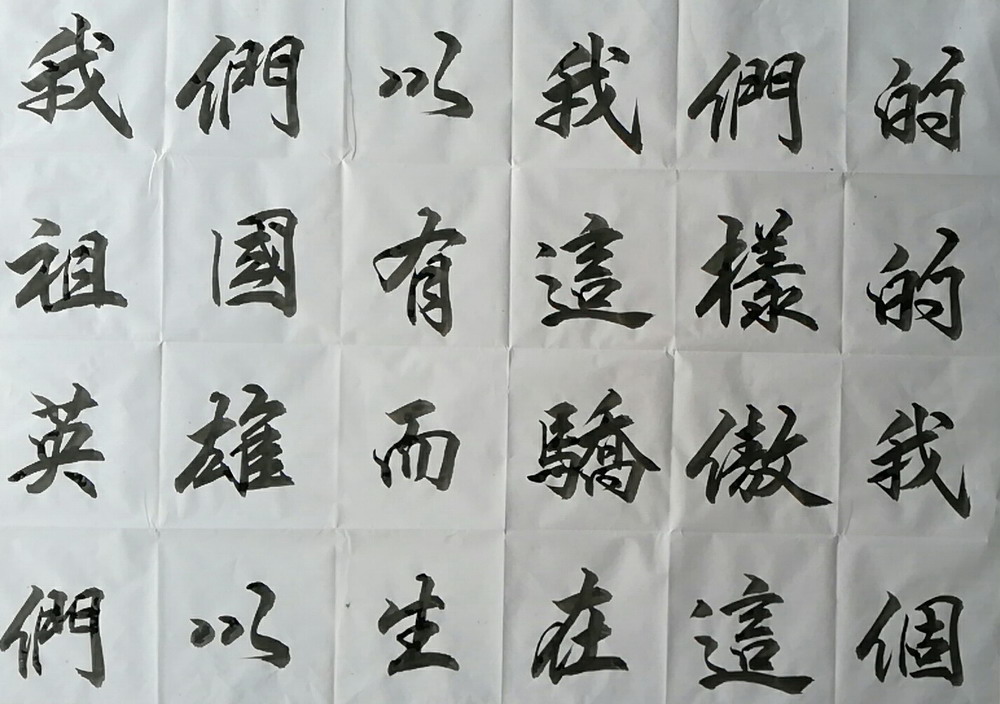 我們以我們的
祖國有這樣的
英雄而驕傲我
們以生在這個